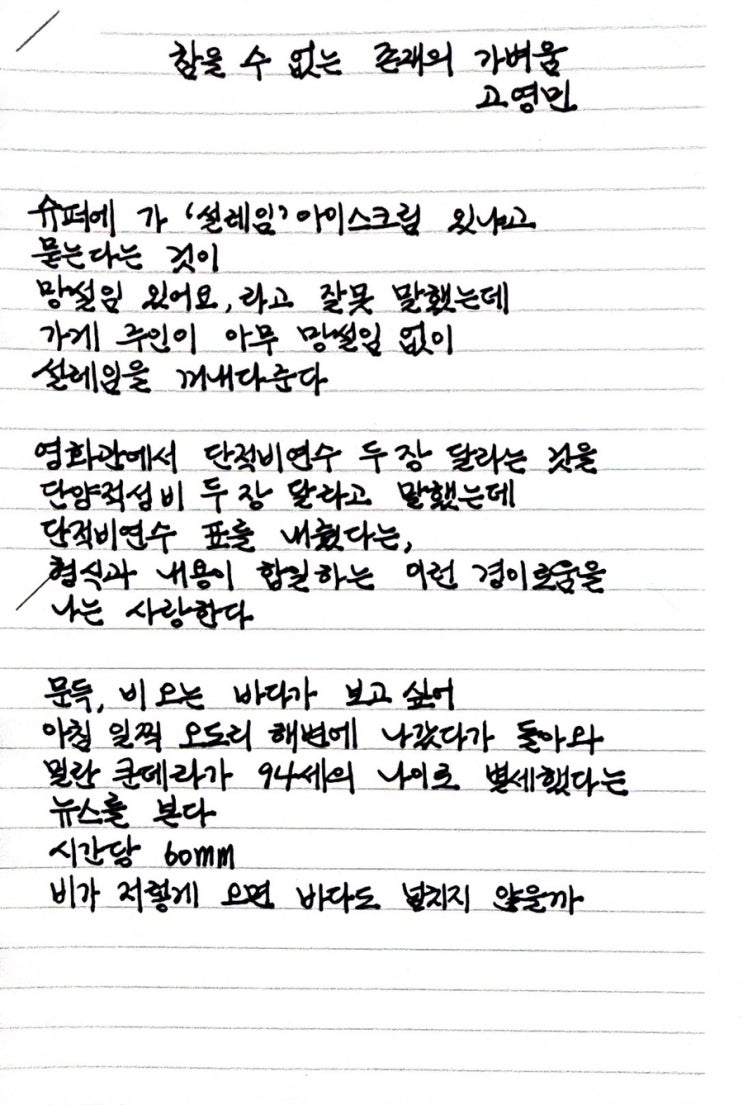 참을 수 없는 존재의 가벼움
고영민
슈퍼에 가 '설레임' 아이스크림 있냐고
묻는다는 것이
망설임 있어요, 라고 잘못 말했는데
가게 주인이 아무 망설임 없이
설레임을 꺼내다준다
영화관에서 단적비연수 두 장 달라는 것을
단양적성비 두 장 달라고 말했는데
단적비연수 표를 내줬다는,
형식과 내용이 합일하는 이런 경이로움을
나는 사랑한다
문득, 비 오는 바다가 보고 싶어
아침 일찍 오도리 해변에 나갔다가 돌아와
밀란 쿤데라가 94세의 나이로 별세했다는
뉴스를 본다
시간당 60mm
비가 저렇게 오면 바다도 넘치지 않을까